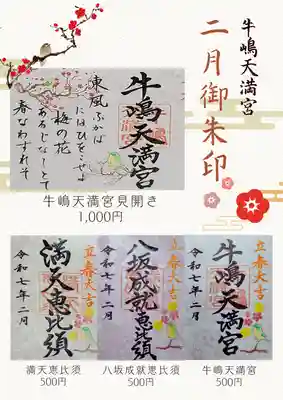 牛嶋天満宮
二月御朱印
牛嶋天満宮
東風ふかば
にほひをこせよ
梅の花
あるじなしとて
春なわすれそ
牛嶋天満宮見開き
1,000円
立春大吉
満天恵比須
令和七年二月
立春大吉
八坂成就恵比須
令和七年二月
立春大吉
牛嶋天満宮
令和七年二月
満天恵比須
500円
八坂成就恵比須
500円
牛嶋天満宮
500円